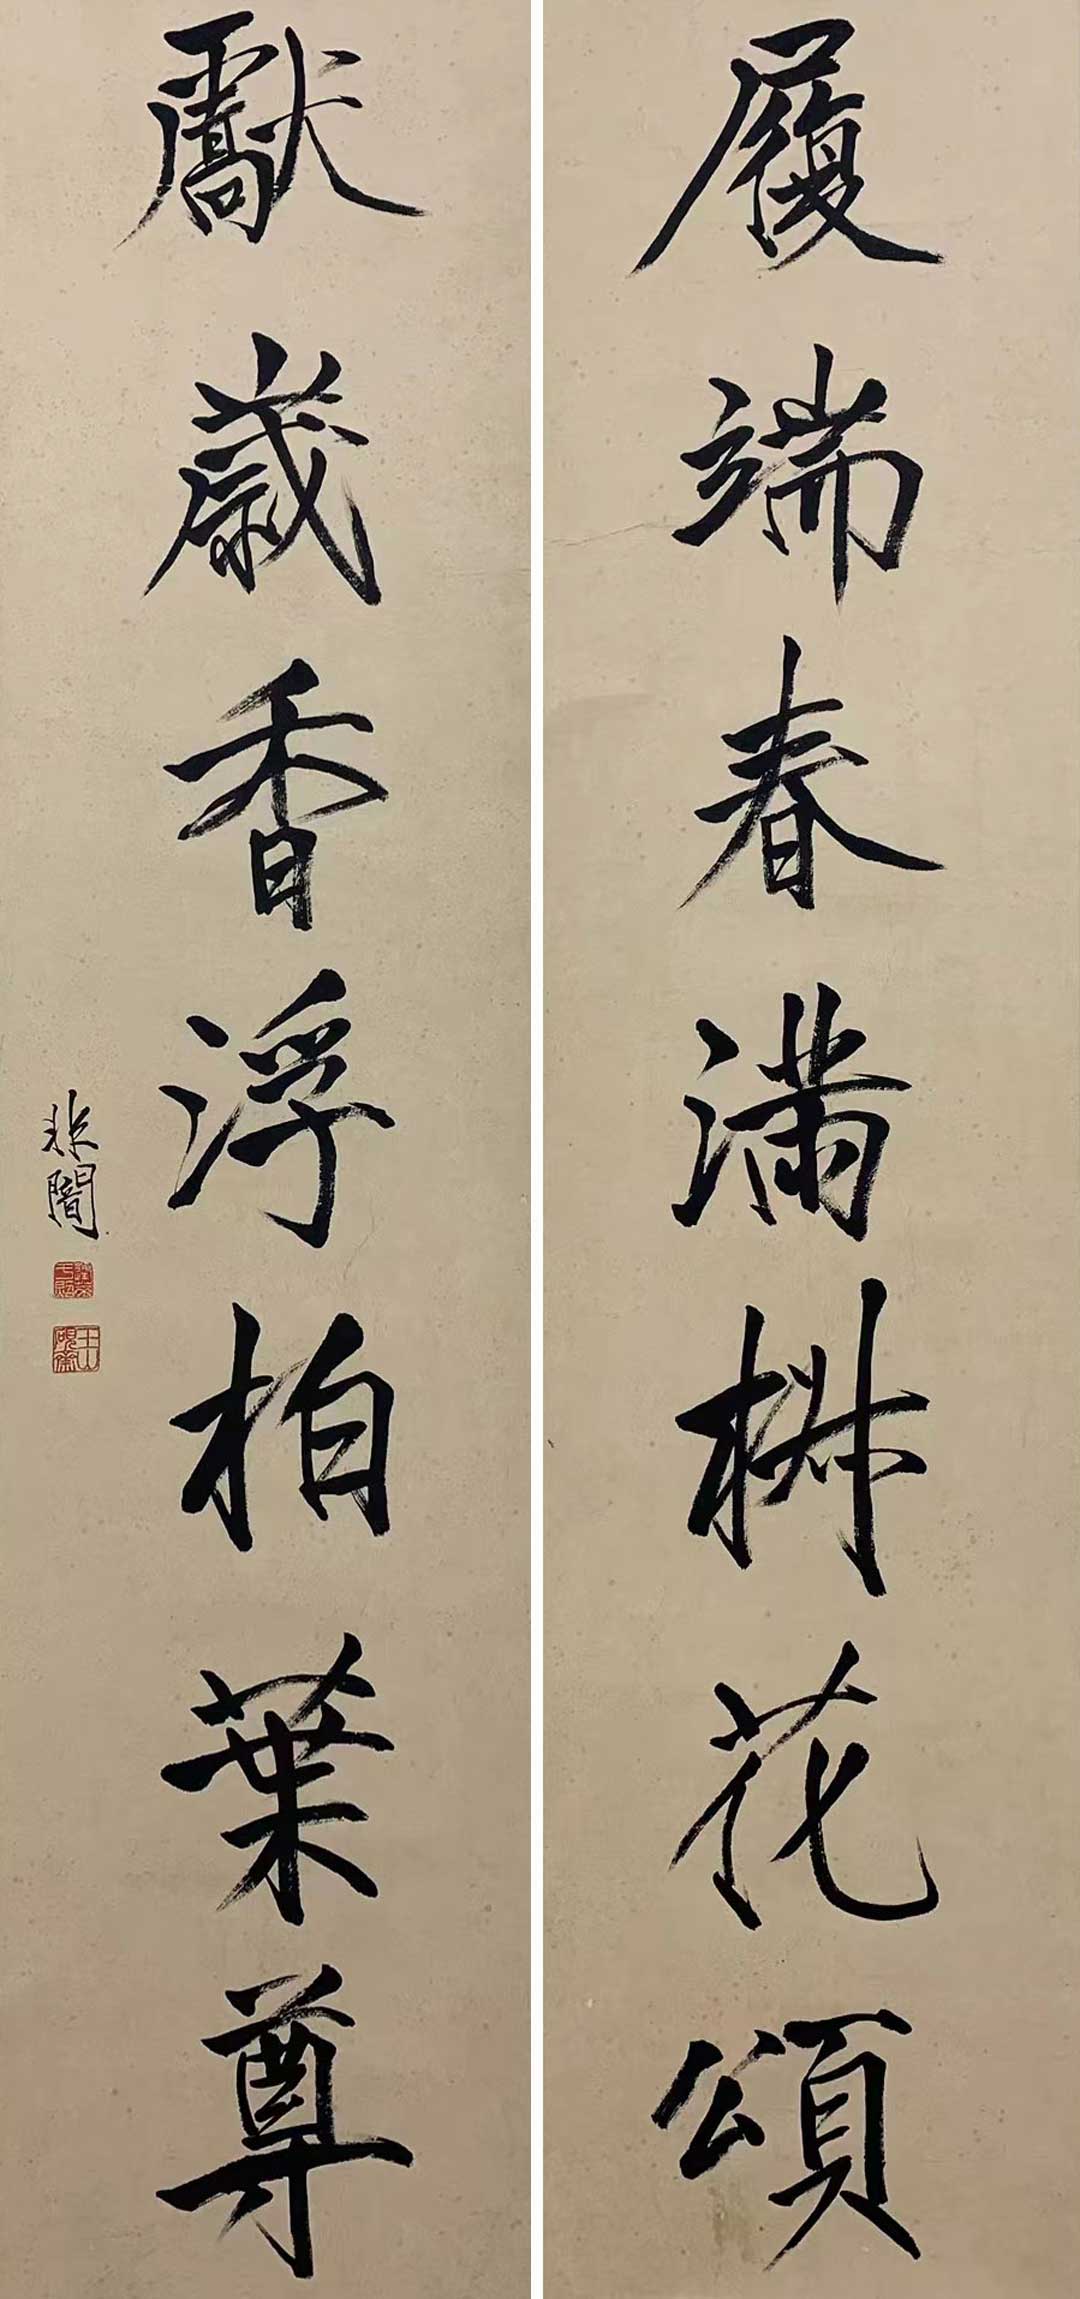 履端春滿椒花頌
獻歲香浮柏葉尊
非闇